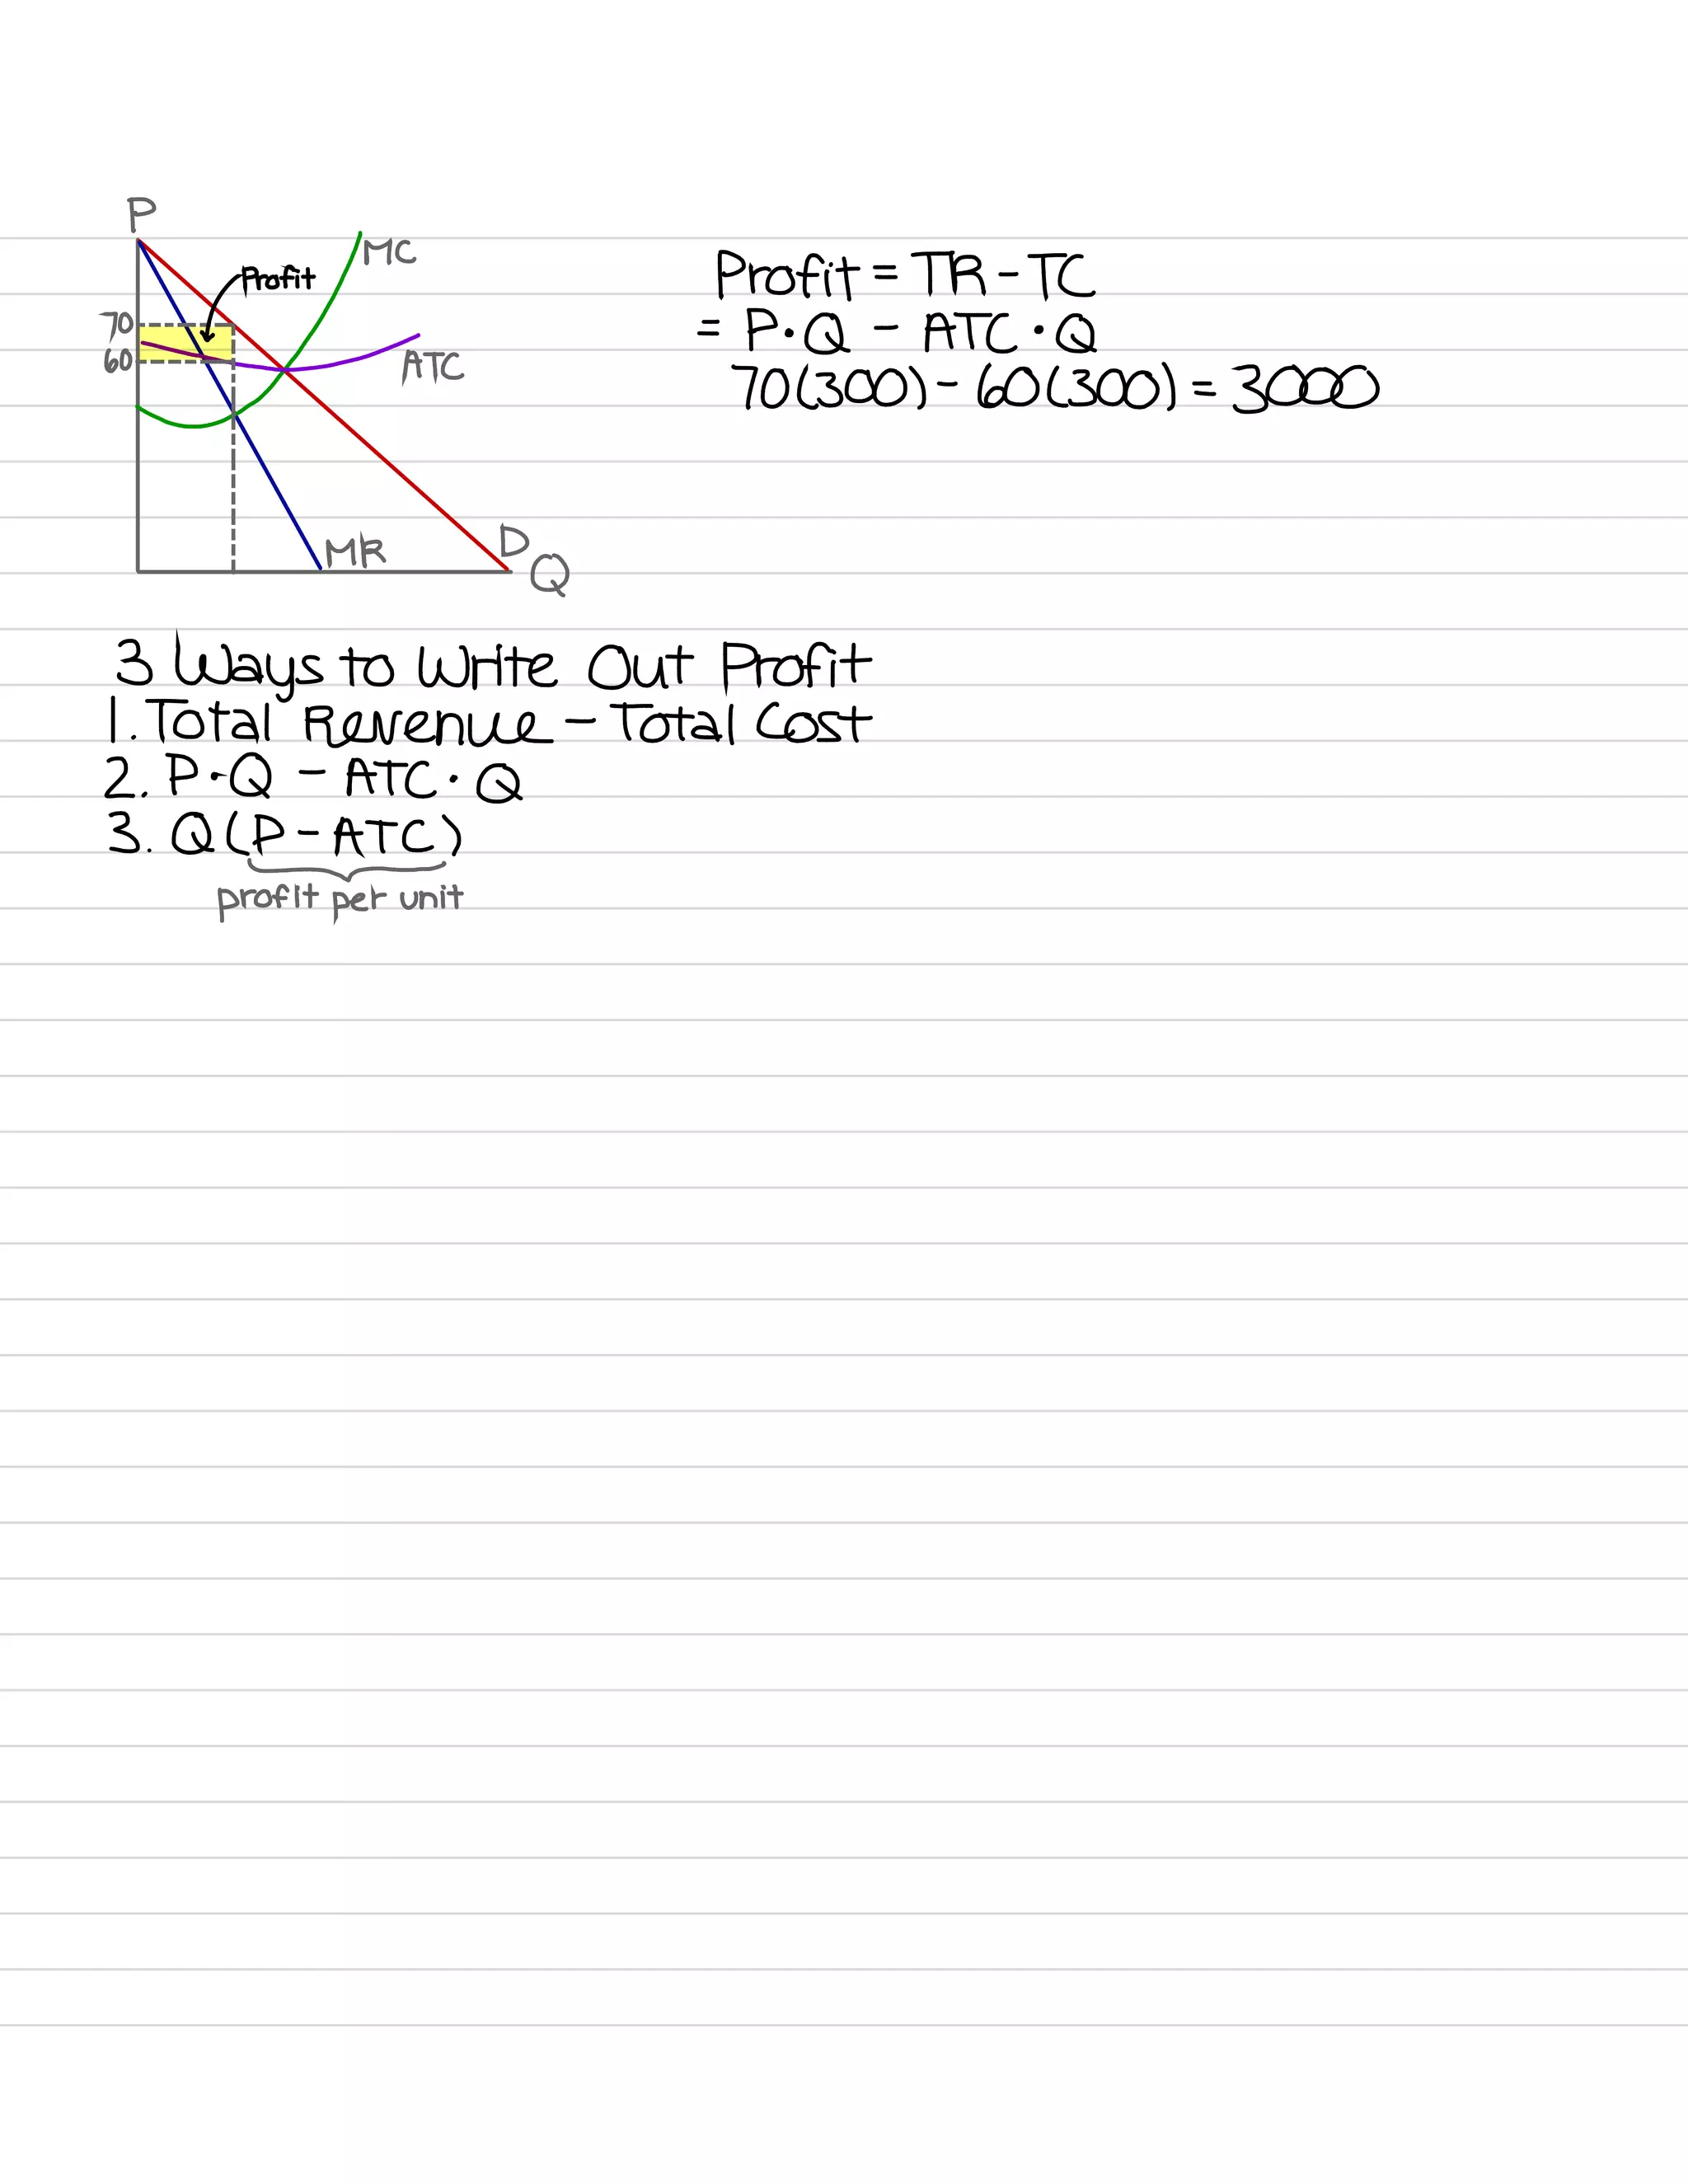 P
MC
Profit
70
60
ATC
MR
D
Q
Profit = TR - TC
= P·Q - ATC·Q
70(300) - 60(300) = 3000
3 Ways to Write Out Profit
1. Total Revenue - Total Cost
2. P·Q - ATC·Q
3. Q(P - ATC)
profit per unit